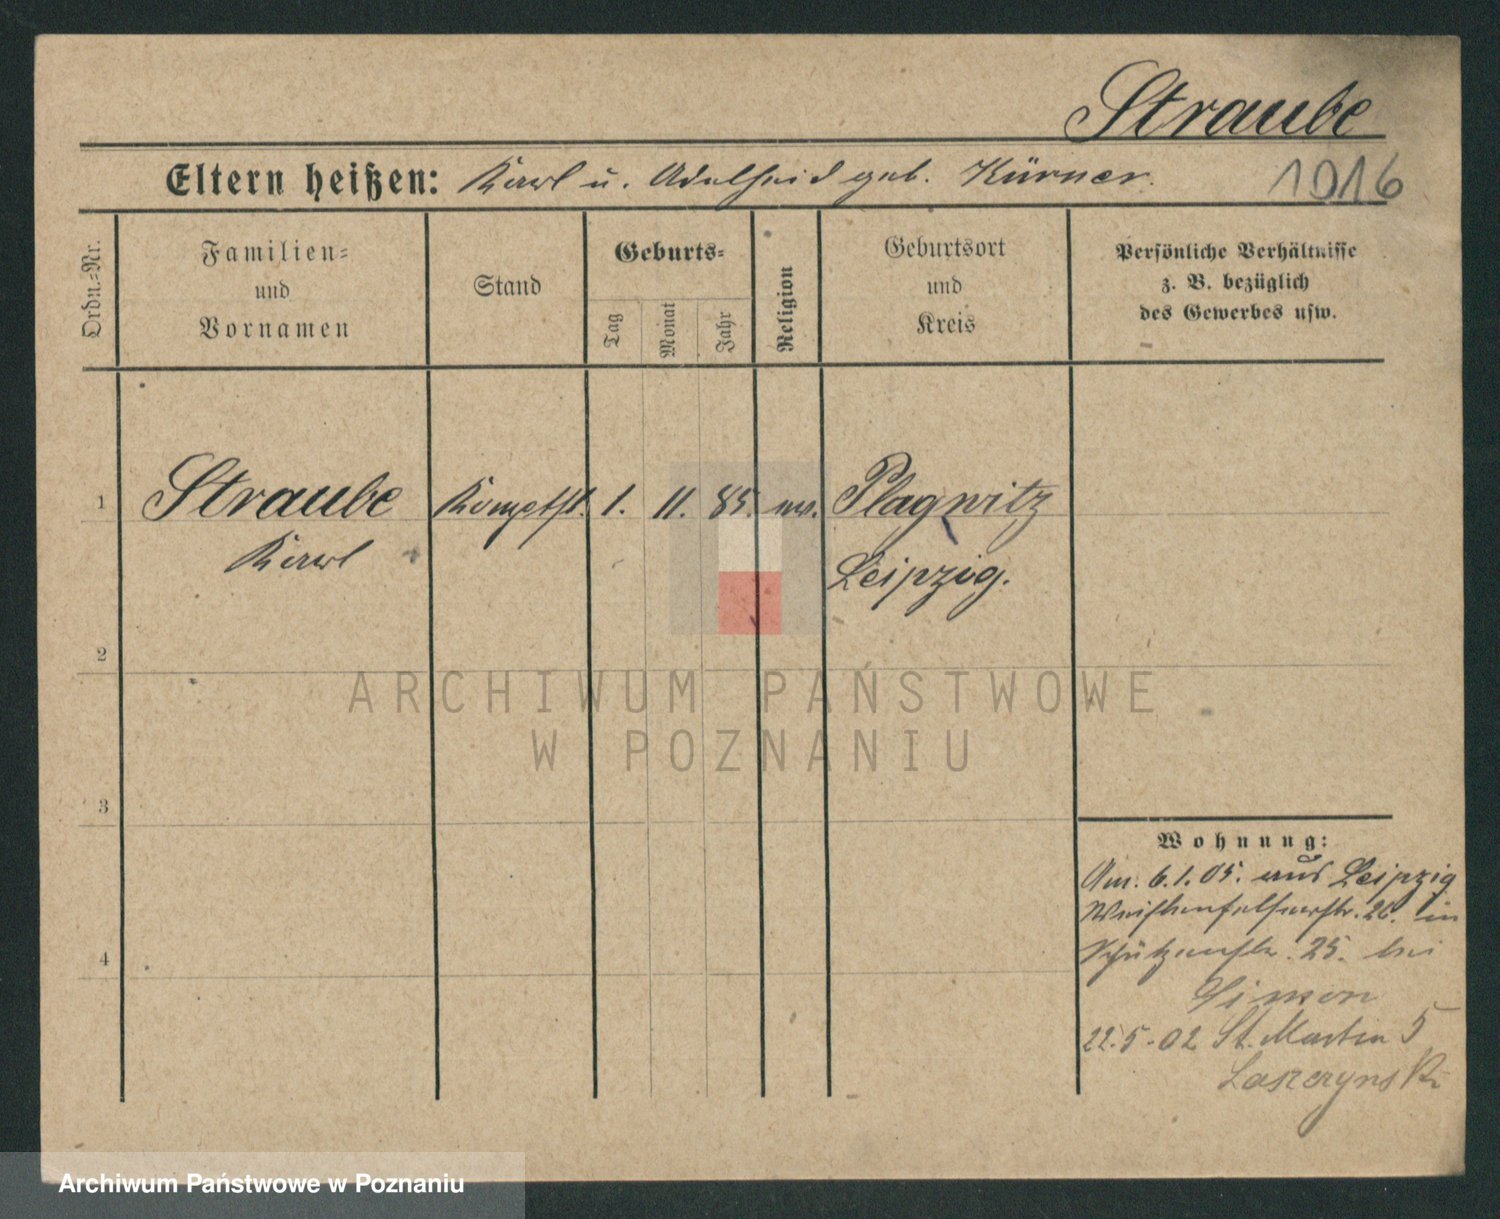 Straube
Eltern heißen: Karl u. Adelheid geb. Kürner.
1016
Ordn.=Nr.
Familien=
und
Vornamen
Stand
Geburts=
Tag
Monat
Jahr
Religion
Geburtsort
und
Kreis
Persönliche Verhältnisse
z. B. bezüglich
des Gewerbes usw.
1
Straube 1. 11. 85. ev. Plagwitz
Karl
Leipzig.
2
ARCHIWUM PAŃSTWOWE
W POZNANIU
3
Wohnung:
Am. 6.1.05. aus Leipzig
Weißenfelserstr. 26. in
Schützenstr. 25. bei
Simon
22.5.02 St. Martin 5
4
Archiwum Państwowe w Poznaniu